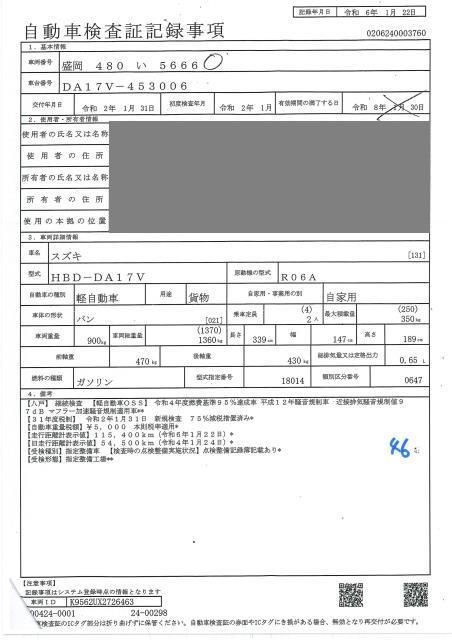 記録年月日 令和 6年 1月 22日
自動車検査証記録事項 0206240003760
1．基本情報
車両番号 盛岡 480 い 5666
車台番号 DA17V-453006
交付年月日 令和 2年 1月 31日 初度検査年月 令和 2年 1月 有効期間の満了する日 令和 8年 1月 30日
2．使用者・所有者情報
使用者の氏名又は名称
使用者の住所
所有者の氏名又は名称
所有者の住所
使用の本拠の位置
3．車両詳細情報
車名 スズキ [131]
型式 HBD-DA17V 原動機の型式 R06A
自動車の種別 軽自動車 用途 貨物 自家用・事業用の別 自家用
車体の形状 バン [021] 乗車定員 (4) 2人 最大積載量 (250) 350kg
車両重量 900kg 車両総重量 (1370) 1360kg 長さ 339cm 幅 147cm 高さ 189cm
前軸重 470kg 後軸重 430kg 総排気量又は定格出力 0.65 L
燃料の種類 ガソリン 型式指定番号 18014 類別区分番号 0647
4．備考
【八戸】 継続検査 【軽自動車OSS】 令和4年度燃費基準95％達成車 平成12年騒音規制車 近接排気騒音規制値9
7dB マフラー加速騒音規制適用車**
【31年度税制】 令和2年1月31日 新規検査 75％減税措置済み*
【自動車重量税額】¥5,000 本則税率適用*
【走行距離計表示値】115,400km（令和6年1月22日）*
【旧走行距離計表示値】54,500km（令和4年1月24日）*
【受検種別】指定整備車 【検査時の点検整備実施状況】点検整備記録簿記載あり*
【受検形態】指定整備工場**
46
【注意事項】
記録事項はシステム登録時点の情報となります
車両ID K9562UX2726463
00424-0001 24-00298
車検査証のICタグ部分は折り曲げずに保管ください。自動車検査証の券面やICタグにき損がある場合、無効となり再交付が必要です。